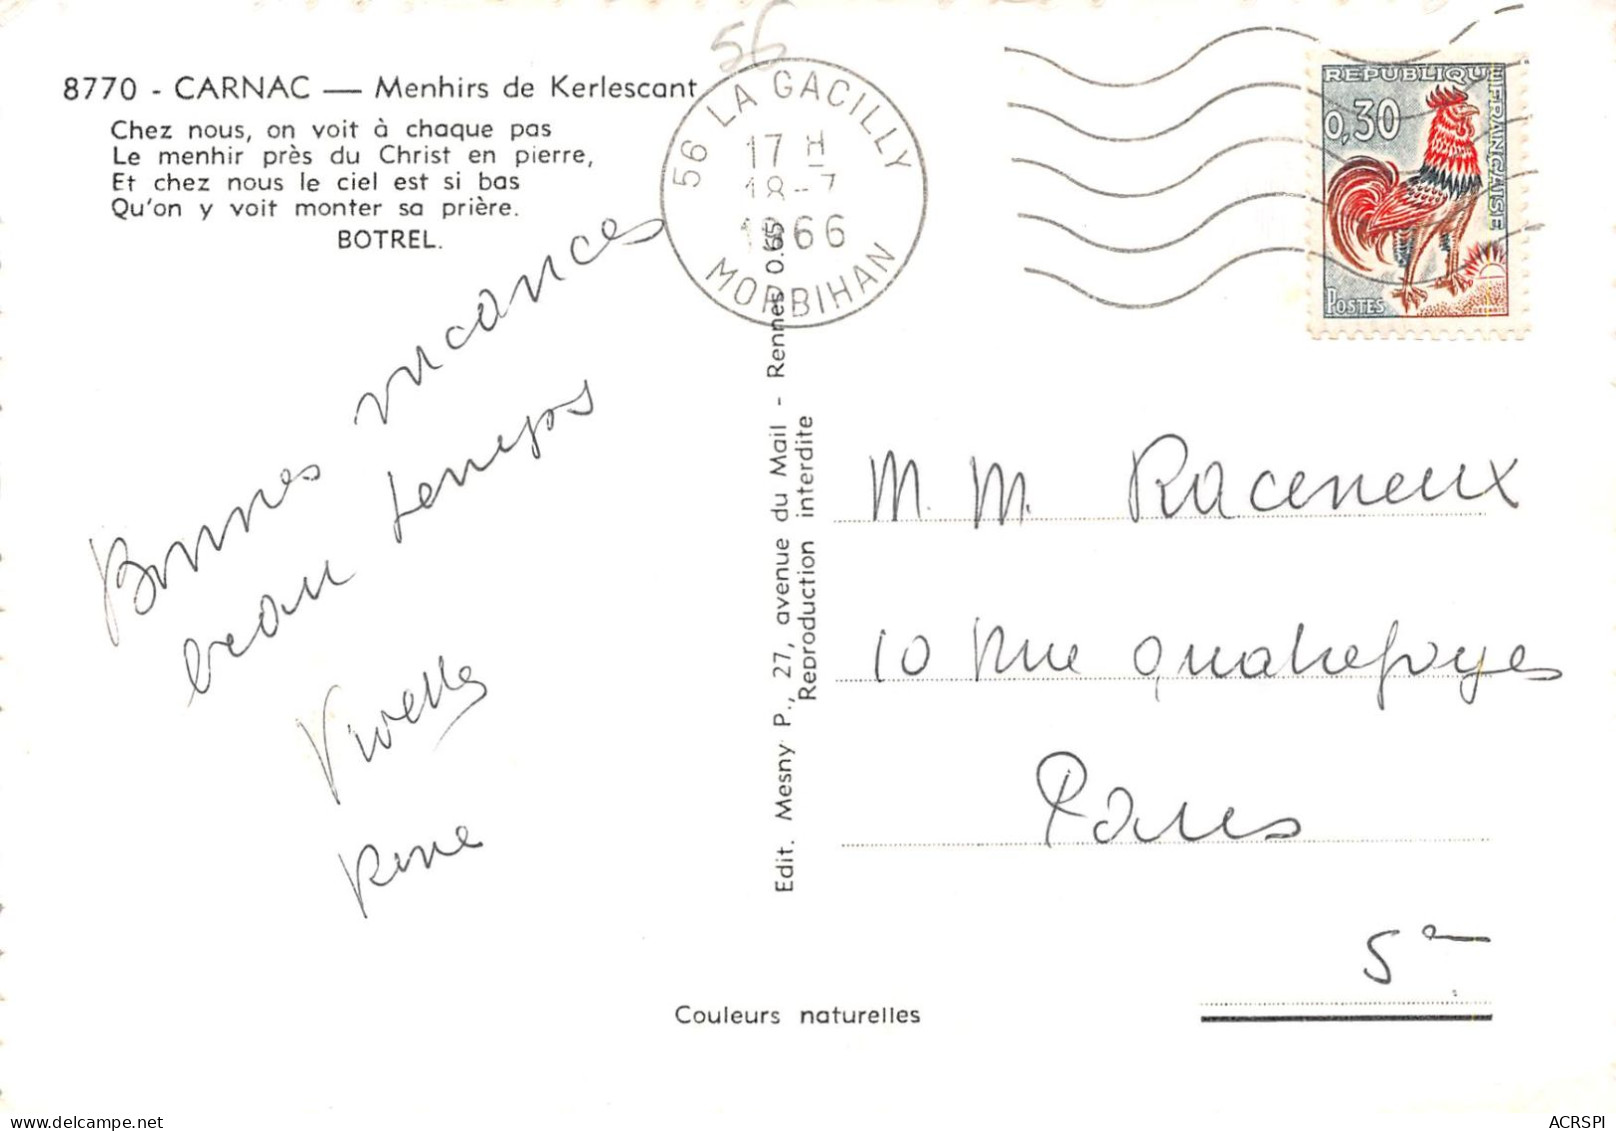 56
8770 - CARNAC — Menhirs de Kerlescant
Chez nous, on voit à chaque pas
Le menhir près du Christ en pierre,
Et chez nous le ciel est si bas
Qu'on y voit monter sa prière.
BOTREL.
56 LA GACILLY
17 H
18-7
1966
MORBIHAN
REPUBLIQUE FRANÇAISE
0,30
POSTES
DECARIS
Bonnes vacances
beau temps
Edit. Mesny P., 27, avenue du Mail - Rennes 0.65
Reproduction interdite
M. M. Raceneux
10 Rue Quatrefages
Paris
5e
Couleurs naturelles
delcampe.net
ACRSPI